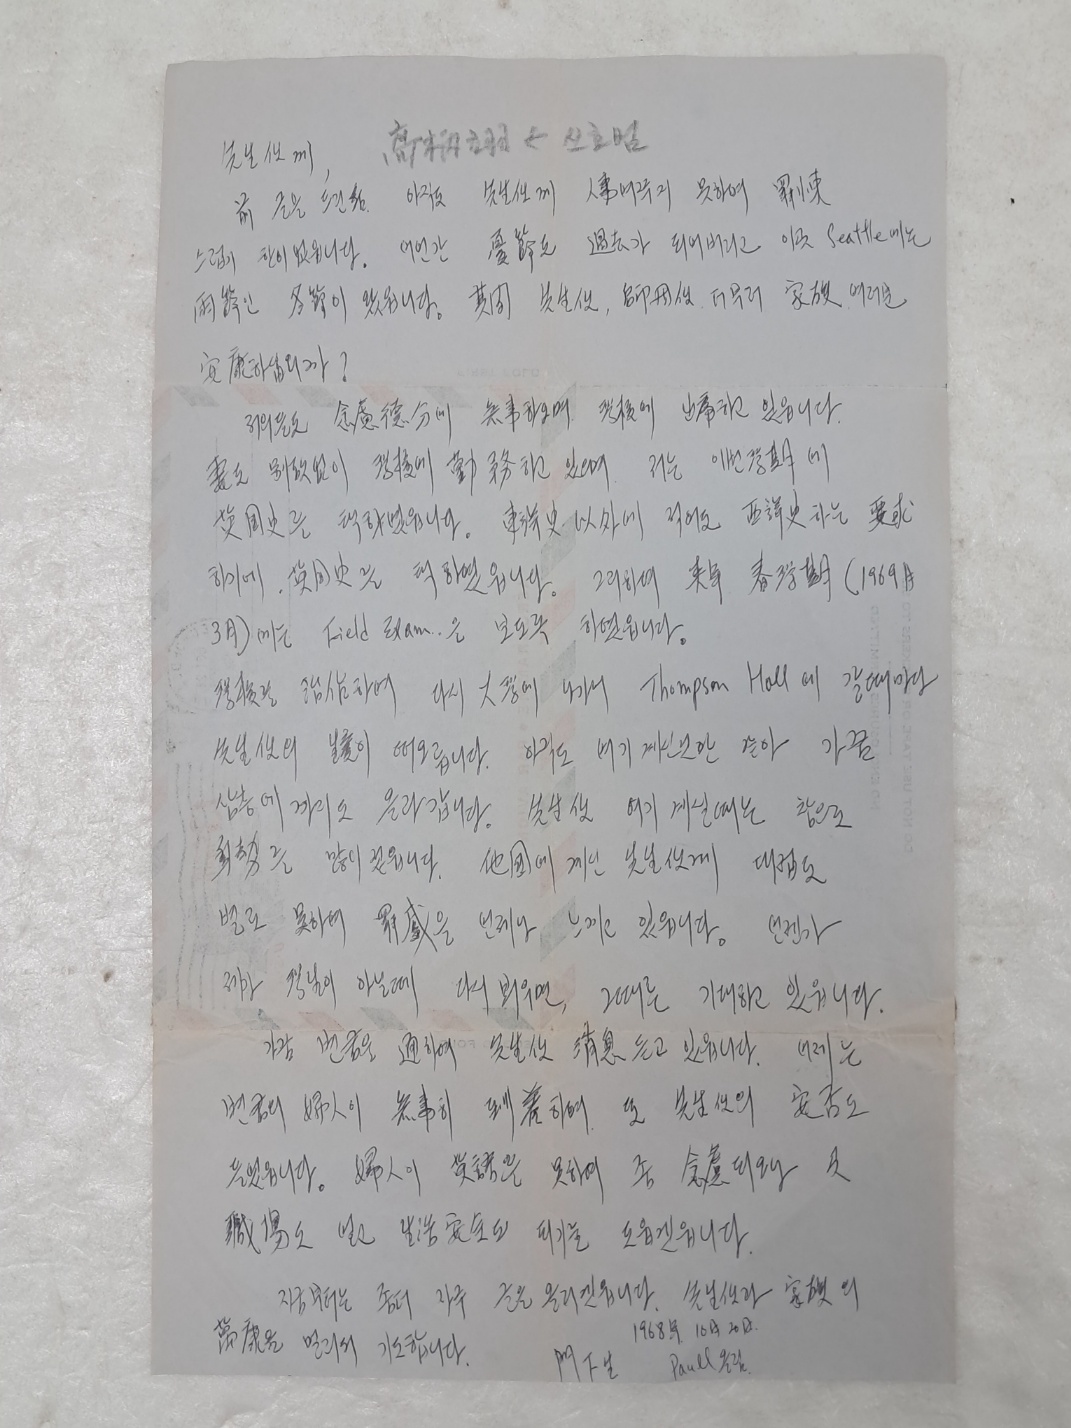 先生任께,
신호범
前 글은 드린후 아직도 先生任께 人事여쭈지 못하여 罪悚
느낌이 한이 없읍니다. 어언간 夏節도 過去가 되어버리고 이곳 Seattle에는
雨節인 冬節이 왔읍니다. 其間 先生任, 師母任 더부러 家族 여러분
安康하십니까?
저의들도 念慮德分에 無事하오며 学校에 出席하고 있읍니다.
妻도 別故없이 学校에 勤務하고 있으며 저는 이번学期에
英国史를 택하였읍니다. 東洋史 以外에 적어도 西洋史 하나는 要求
하기에, 英国史를 택하였읍니다. 그리하여 来年 春学期 (1969年
3月)에는 Field Exam..을 보도록 하였읍니다.
学校를 始作하여 다시 大学에 나가서 Thompson Hall에 갈때마다
先生任의 生覺이 떠오릅니다. 아직도 여기 계신것만 같아 가끔
삼층에 까지도 올라갑니다. 先生任 여기 계실때는 참으로
많이 졌읍니다. 他国에 계신 先生任께 대접도
별로 못하여 罪感을 언제나 느끼고 있읍니다. 언젠가
제가 学生이 아닐때 다시 뵈오면, 그때를 기대하고 있읍니다.
가끔 변君을 通하여 先生任 消息 듣고 있읍니다. 어제는
변君의 婦人이 無事히 到着하여 또 先生任의 安否도
들었읍니다. 婦人이 英語를 못하여 좀 念慮되오나 곧
職場도 얻고 生活安定도 되기를 도웁겠읍니다.
지금부터는 좀더 자주 글을 올리겠읍니다. 先生任과 家族의
萬康을 멀리서 기도합니다.
1968年 10月 20日.
門下生 Paull 올림.